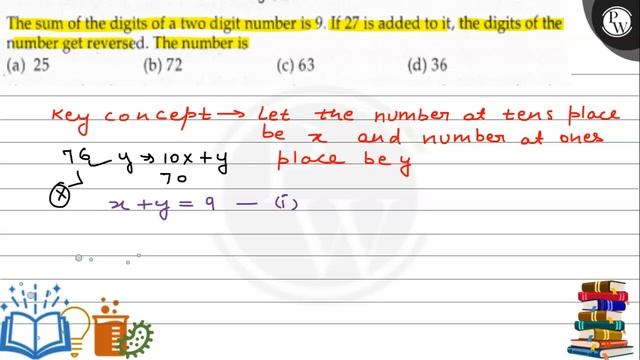 The sum of the digits of a two digit number is 9. If 27 is added to it, the digits of the
number get reversed. The number is
(a) 25 (b) 72 (c) 63 (d) 36
Key concept → Let the number at tens place
be x and number at ones
place be y
76 y → 10x+y
70
x
x + y = 9 — (i)
PW